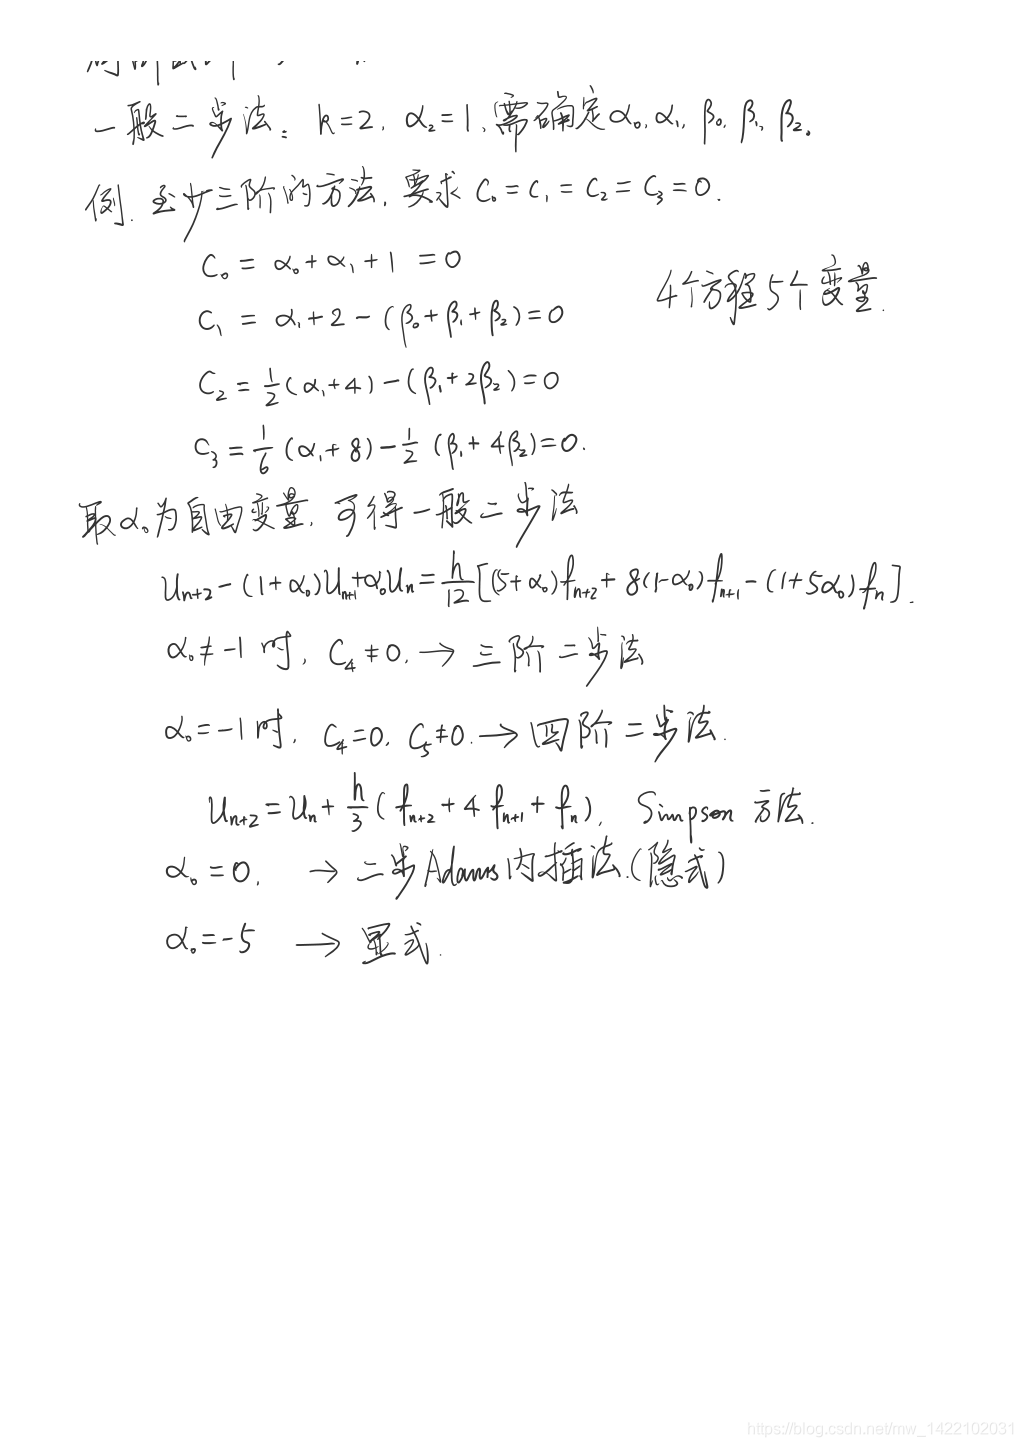 一般二步法: k=2, α₂=1, 需确定α₀, α₁, β₀, β₁, β₂.
例. 至少三阶的方法, 要求 C₀=C₁=C₂=C₃=0.
C₀ = α₀+α₁+1 =0
4个方程5个变量.
C₁ = α₁+2-(β₀+β₁+β₂)=0
C₂ = 1/2(α₁+4)-(β₁+2β₂)=0
C₃ = 1/6(α₁+8)-1/2(β₁+4β₂)=0.
取α₀为自由变量, 可得一般二步法
uₙ₊₂-(1+α₀)uₙ₊₁+α₀uₙ=h/12[(5+α₀)fₙ₊₂+8(1-α₀)fₙ₊₁-(1+5α₀)fₙ].
α₀≠-1 时, C₄≠0, → 三阶二步法
α₀=-1时, C₄=0, C₅≠0. → 四阶二步法.
uₙ₊₂=uₙ+h/3(fₙ₊₂+4fₙ₊₁+fₙ), Simpson 方法.
α₀=0, → 二步Adams内插法.(隐式)
α₀=-5 → 显式.
https://blog.csdn.net/mw_1422102031